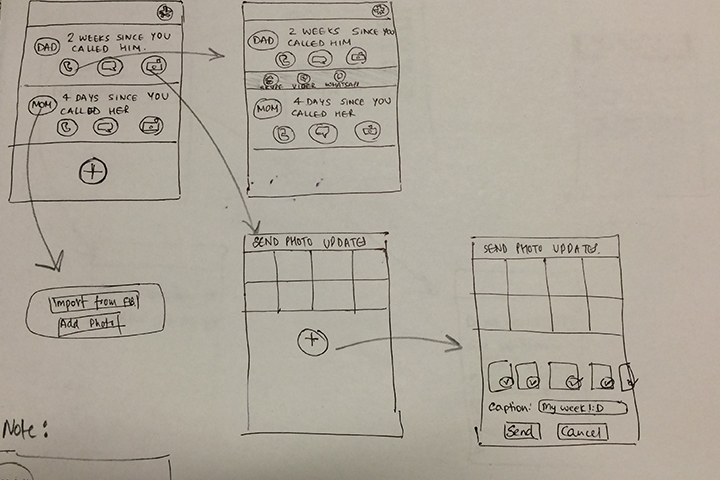 DAD
2 WEEKS SINCE YOU
CALLED HIM.
MOM
4 DAYS SINCE YOU
CALLED HER
DAD
2 WEEKS SINCE YOU
CALLED HIM
SKYPE VIBER WHATSAPP
MOM
4 DAYS SINCE YOU
CALLED HER
Import from FB
Add Photo
SEND PHOTO UPDATES
SEND PHOTO UPDATES.
Caption: My week! :D
Send Cancel
Note: